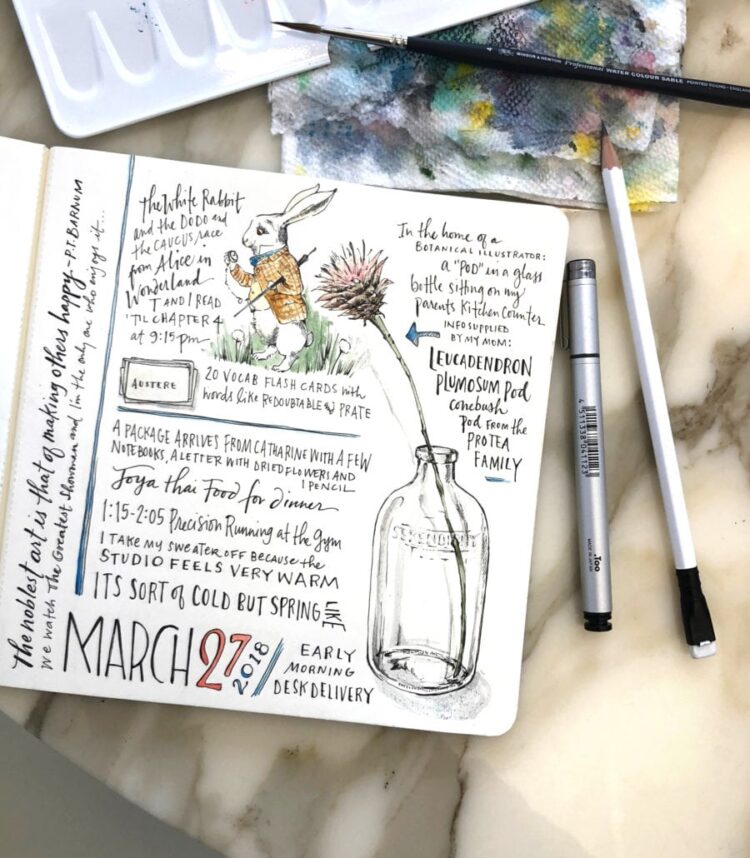 The noblest art is that of making others happy - P.T. BARNUM
We watch The Greatest Showman and I'm the only one who enjoys it...
the White Rabbit
and the DODO and
the CAUCUS race
from Alice in
Wonderland
T AND I READ
'TIL CHAPTER 4
at 9:15pm
AUSTERE
20 VOCAB FLASH CARDS with
words like REDOUBTABLE & PRATE
A PACKAGE ARRIVES FROM CATHARINE WITH A FEW
NOTEBOOKS, A LETTER WITH DRIED FLOWERS AND
1 PENCIL
Joya Thai Food for dinner
1:15-2:05 Precision Running at the Gym
I TAKE MY SWEATER OFF BECAUSE the
STUDIO FEELS VERY WARM
ITS SORT of COLD BUT SPRING LIKE
MARCH 27 2018
EARLY
MORNING
DESK DELIVERY
In the home of a
BOTANICAL ILLUSTRATOR:
a "POD" in a glass
bottle sitting on my
parents Kitchen Counter
INFO SUPPLIED
BY MY MOM:
LEUCADENDRON
PLUMOSUM Pod
conebush
pod from the
PROTEA
FAMILY
4
WINSOR & NEWTON
Professional WATER COLOUR SABLE
POINTED ROUND
ENGLAND
4 511338 041123
Too
MADE IN JAPAN